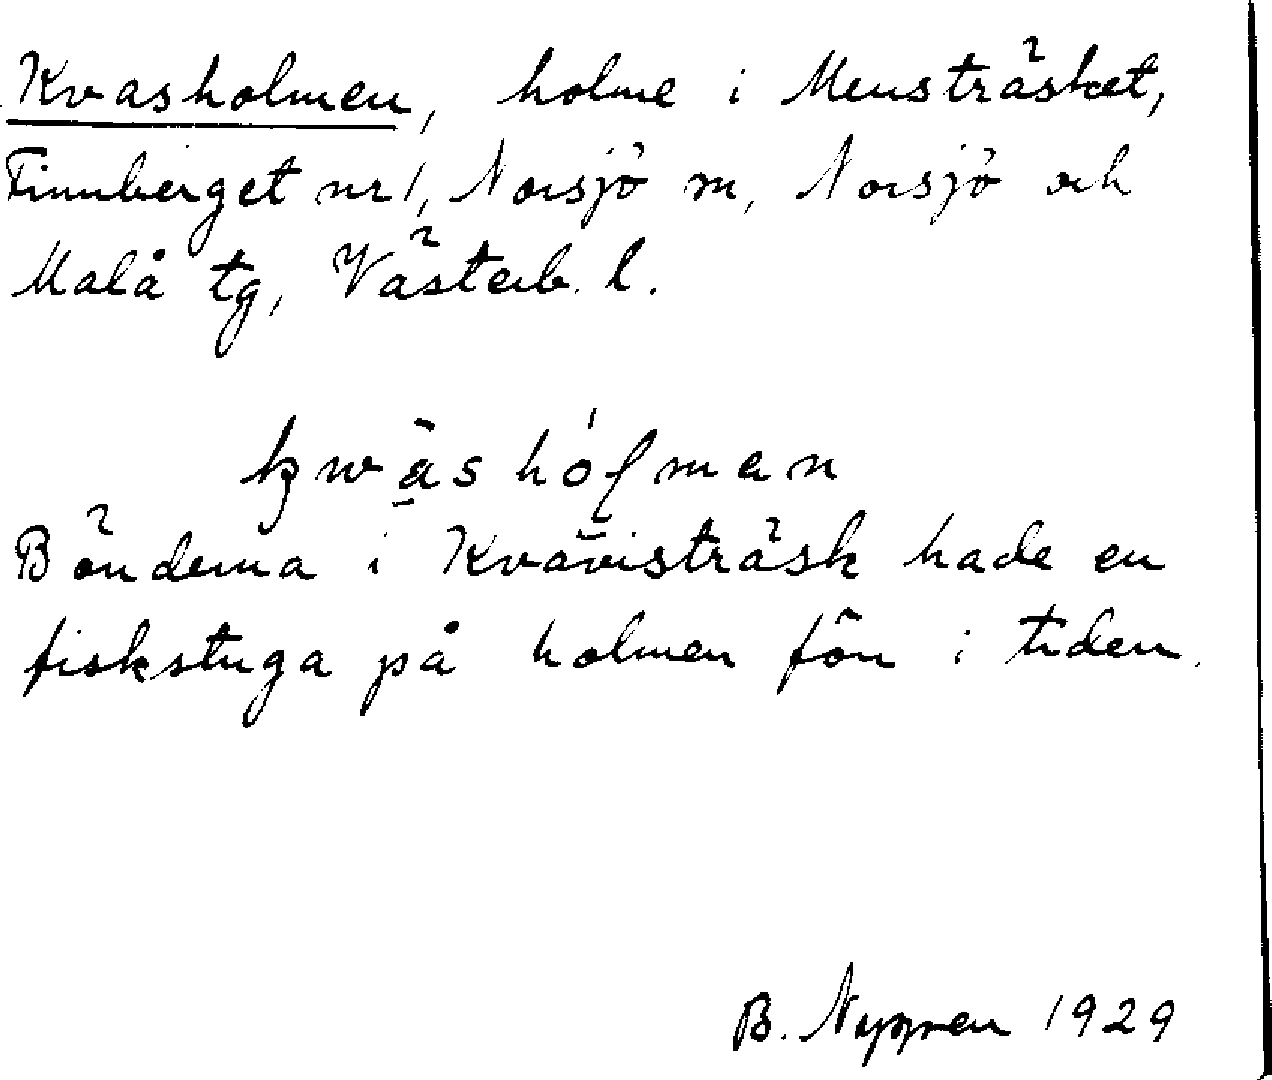 Kvasholmen, holme i Mensträsket,
Finnberget nr 1, Norsjö sn, Norsjö och
Malå tg, Västerb. l.
kwäshólman
Bönderna i Kvavisträsk hade en
fiskstuga på holmen förr i tiden.
B. 1929